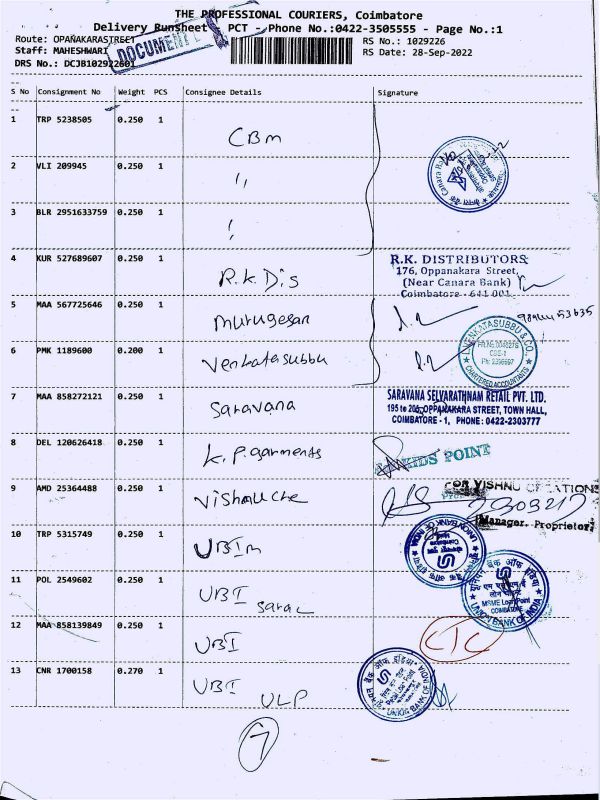 THE PROFESSIONAL COURIERS, Coimbatore
Delivery Runsheet PCT - Phone No.:0422-3505555 - Page No.:1
Route: OPANAKARASTREET
DOCUMENT
RS No.: 1029226
Staff: MAHESHWARI
RS Date: 28-Sep-2022
DRS No.: DCJB102922601
S No Consignment No Weight PCS Consignee Details Signature
1 TRP 5238505 0.250 1 CBm
2 VLI 209945 0.250 1 ,,
3 BLR 2951633759 0.250 1
4 KUR 527689607 0.250 1 R.K.Dis
R.K. DISTRIBUTORS
176, Oppanakara Street,
(Near Canara Bank)
Coimbatore - 641 001.
5 MAA 567725646 0.250 1 murugesan
6 PMK 1189600 0.200 1 Venkatasubbu
VENKATASUBBU & CO.
CHARTERED ACCOUNTANTS
7 MAA 858272121 0.250 1 Saravana
SARAVANA SELVARATHNAM RETAIL PVT. LTD.
195 to 205, OPPANAKARA STREET, TOWN HALL,
COIMBATORE - 1, PHONE: 0422-2303777
8 DEL 120626418 0.250 1 K.P.garments
KIDS POINT
9 AMD 25364488 0.250 1
FOR VISHNU CREATIONS
Manager. Proprietor
10 TRP 5315749 0.250 1 UBIm
UNION BANK OF INDIA
11 POL 2549602 0.250 1 UBI Saral
यूनियन बैंक ऑफ इंडिया
MSME Loan Point
COIMBATORE
UNION BANK OF INDIA
12 MAA 858139849 0.250 1 UBI
CTC
13 CNR 1700158 0.270 1 UBI ULP
UNION BANK OF INDIA
7